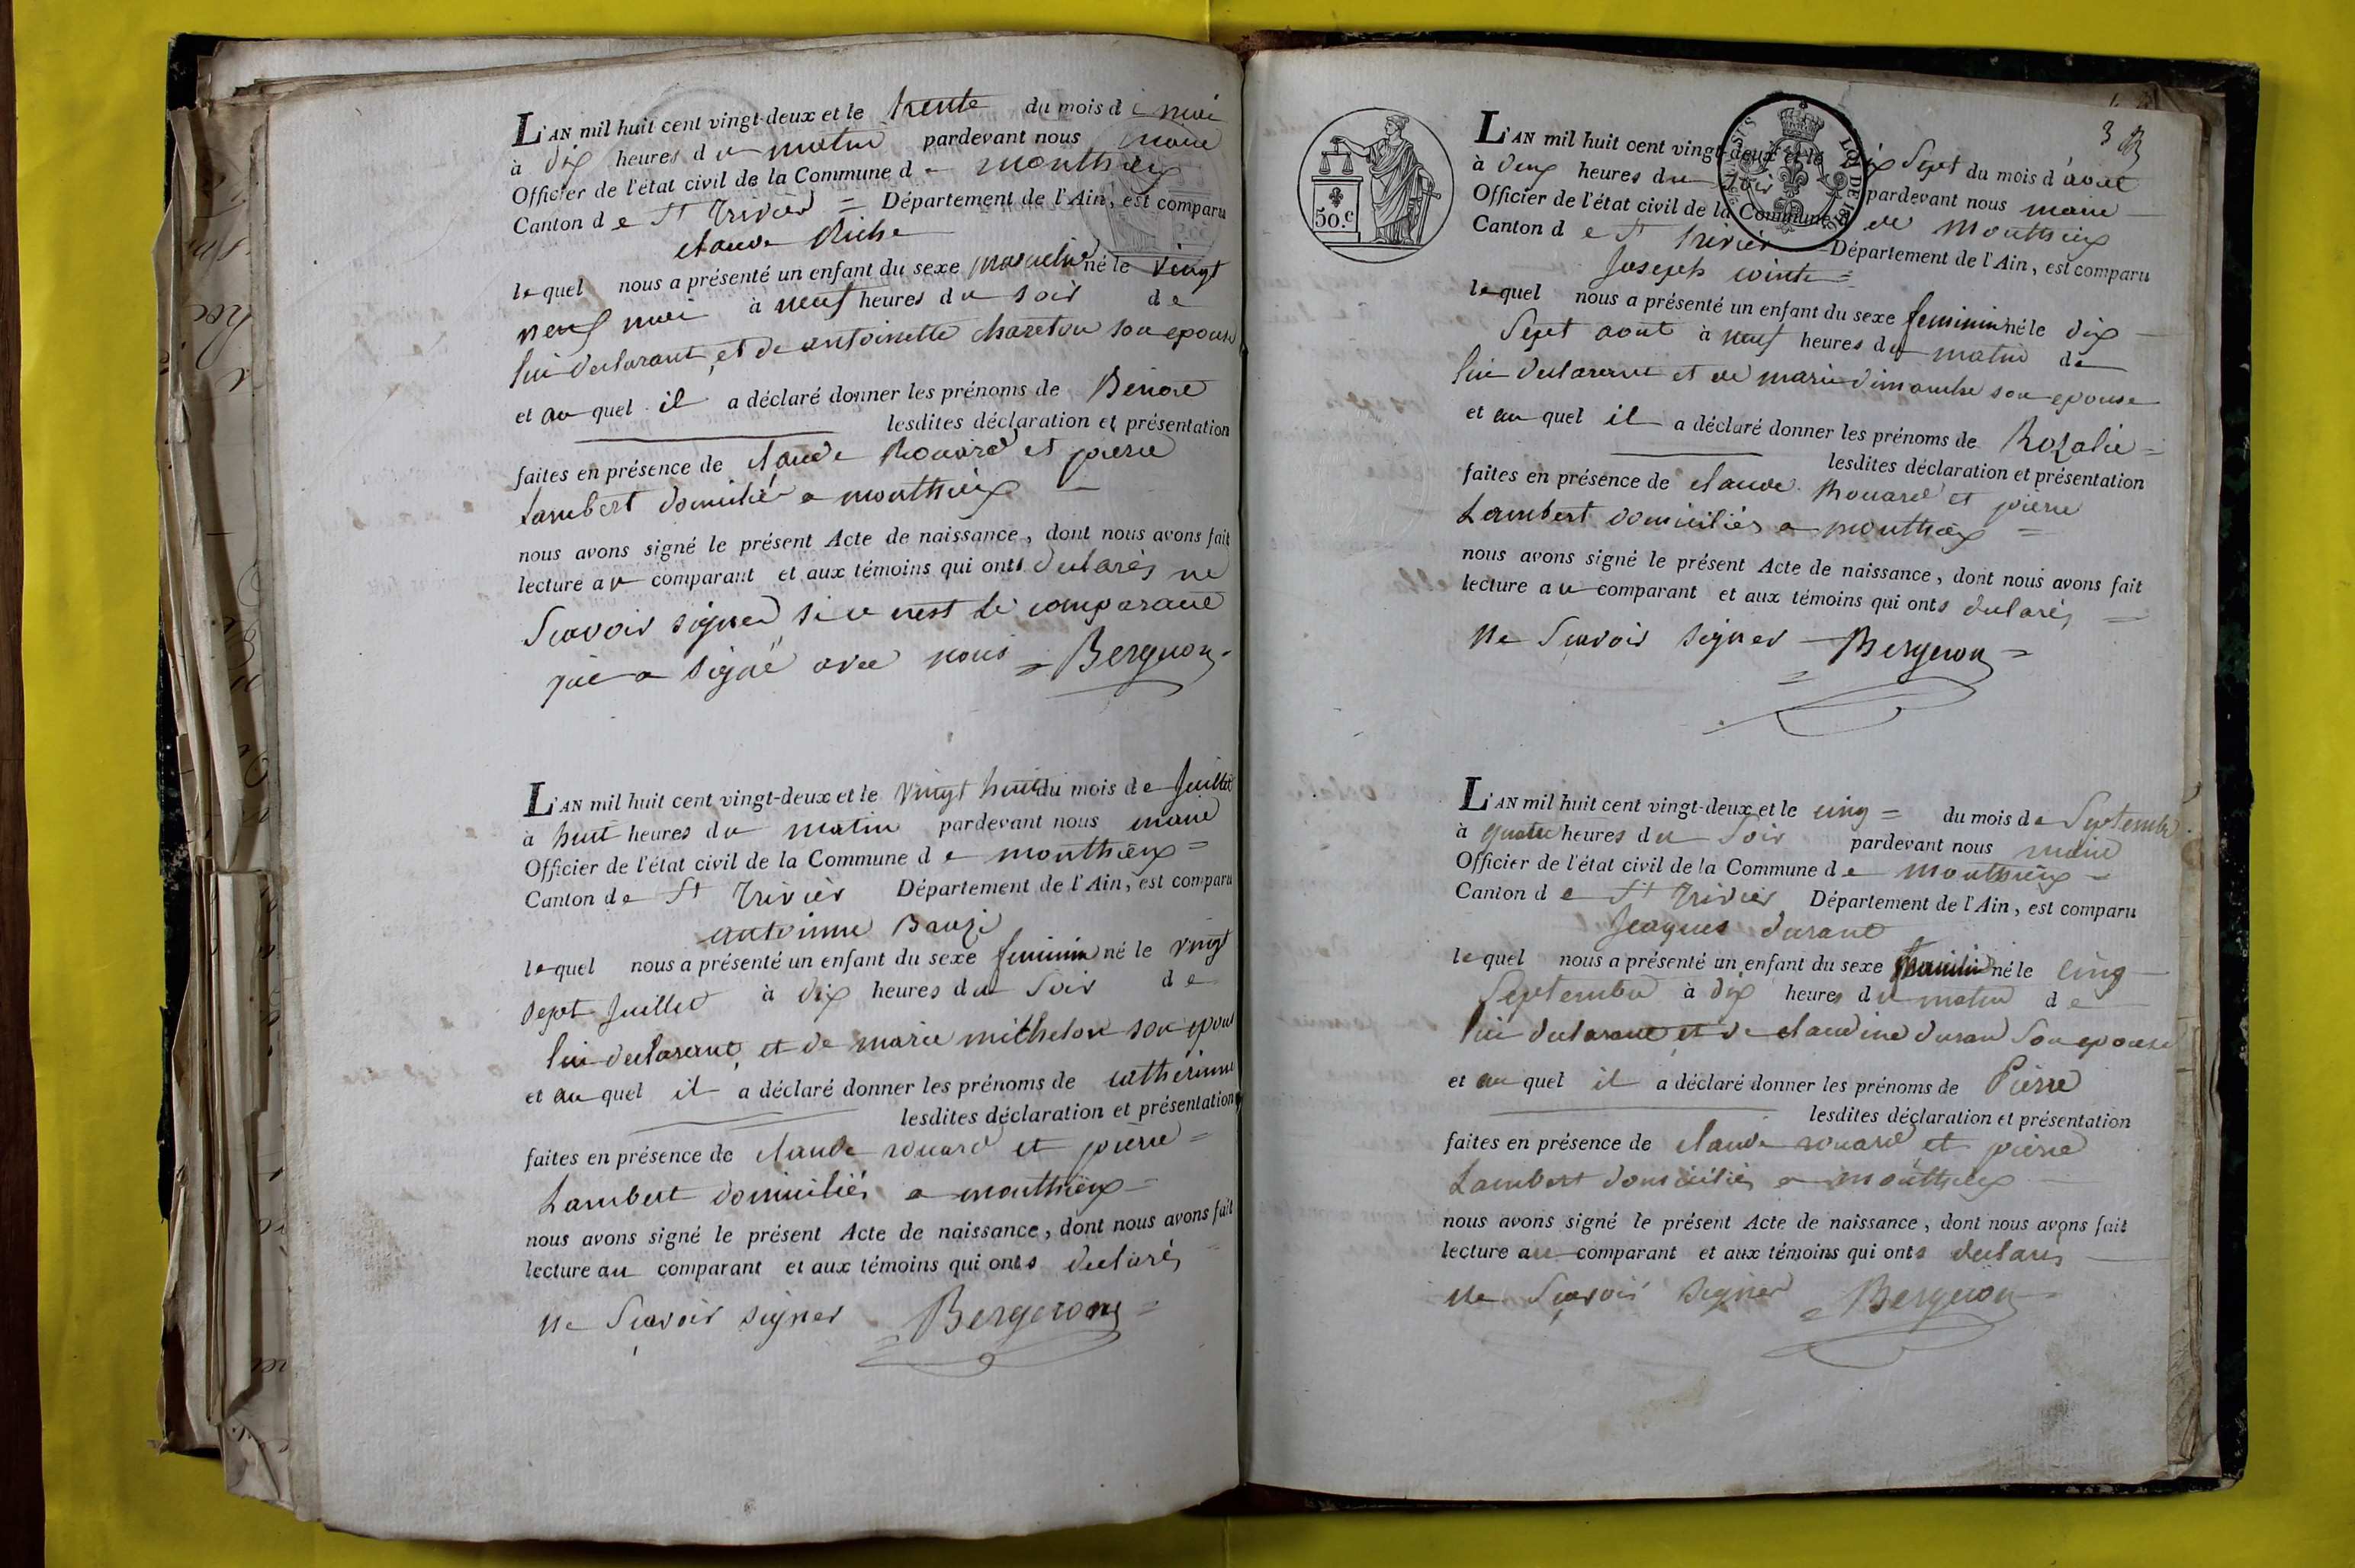 L'AN mil huit cent vingt-deux et le trente du mois de mai
à dix heures du matin pardevant nous maire
Officier de l'état civil de la Commune de monthieux
Canton de St Trivier = Département de l'Ain, est comparu
claude Riche
lequel nous a présenté un enfant du sexe masculin né le vingt
neuf mai à neuf heures du soir de
lui declarant et de antoinette chareton son epouse
et au quel il a déclaré donner les prénoms de Benoit
lesdites déclaration et présentation
faites en présence de claude Rouard et pierre
Lambert domicilié a monthieux
nous avons signé le présent Acte de naissance, dont nous avons fait
lecture au comparant et aux témoins qui onts declarés ne
scavoir signer si ce nest le comparant
qui a signé avec nous = Bergeron
L'AN mil huit cent vingt-deux et le vingt huit du mois de Juillet
à huit heures du matin pardevant nous maire
Officier de l'état civil de la Commune de monthieux =
Canton de St Trivier Département de l'Ain, est comparu
antoinne
lequel nous a présenté un enfant du sexe feminin né le vingt
sept Juillet à dix heures du Soir de
lui declarant et de marie michelon son epouse
et au quel il a déclaré donner les prénoms de catherinne
lesdites déclaration et présentation
faites en présence de claude rouard et pierre =
Lambert domiciliés a monthieux =
nous avons signé le présent Acte de naissance, dont nous avons fait
lecture au comparant et aux témoins qui onts declarés
ne Scavoir signer = Bergeron =
3
50.c
LOI DE
L'AN mil huit cent vingt-deux et le dix Sept du mois d'aout
à deux heures du soir pardevant nous maire
Officier de l'état civil de la Commune de Monthieux
Canton de St trivier Département de l'Ain, est comparu
Joseph cointe =
lequel nous a présenté un enfant du sexe feminin né le dix
Sept aout à neuf heures du matin de
lui declarant et de marie dimanche son epouse
et au quel il a déclaré donner les prénoms de Rozalie =
lesdites déclaration et présentation
faites en présence de claude Rouard et pierre
Lambert domiciliés a monthieux =
nous avons signé le présent Acte de naissance, dont nous avons fait
lecture au comparant et aux témoins qui onts declarés
ne Scavoir signer Bergeron =
L'AN mil huit cent vingt-deux et le cinq = du mois de Septembre
à quatre heures du Soir pardevant nous maire
Officier de l'état civil de la Commune de Monthieux =
Canton de St Trivier Département de l'Ain, est comparu
Jeaques durant
lequel nous a présenté un enfant du sexe né le cinq
Septembre à dix heures du matin de
lui declarant et de claudine duran Son epouse
et au quel il a déclaré donner les prénoms de Pierre
lesdites déclaration et présentation
faites en présence de claude rouard et pierre
Lambert domiciliés a monthieux
nous avons signé le présent Acte de naissance, dont nous avons fait
lecture au comparant et aux témoins qui onts declarés
ne Scavoir Signer = Bergeron =